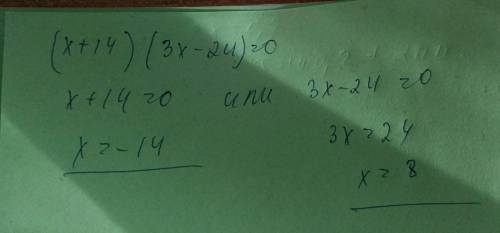 (x+14)(3x-24)=0
x+14=0 или 3x-24=0
x=-14
3x=24
x=8